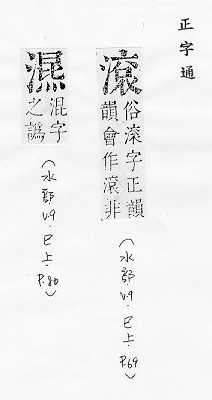 正字通
俗滚字正韻
韻會作滚非
(水部 V.9.巳上.P.69)
混字
之譌
(水部 V.9.巳上.P.80)